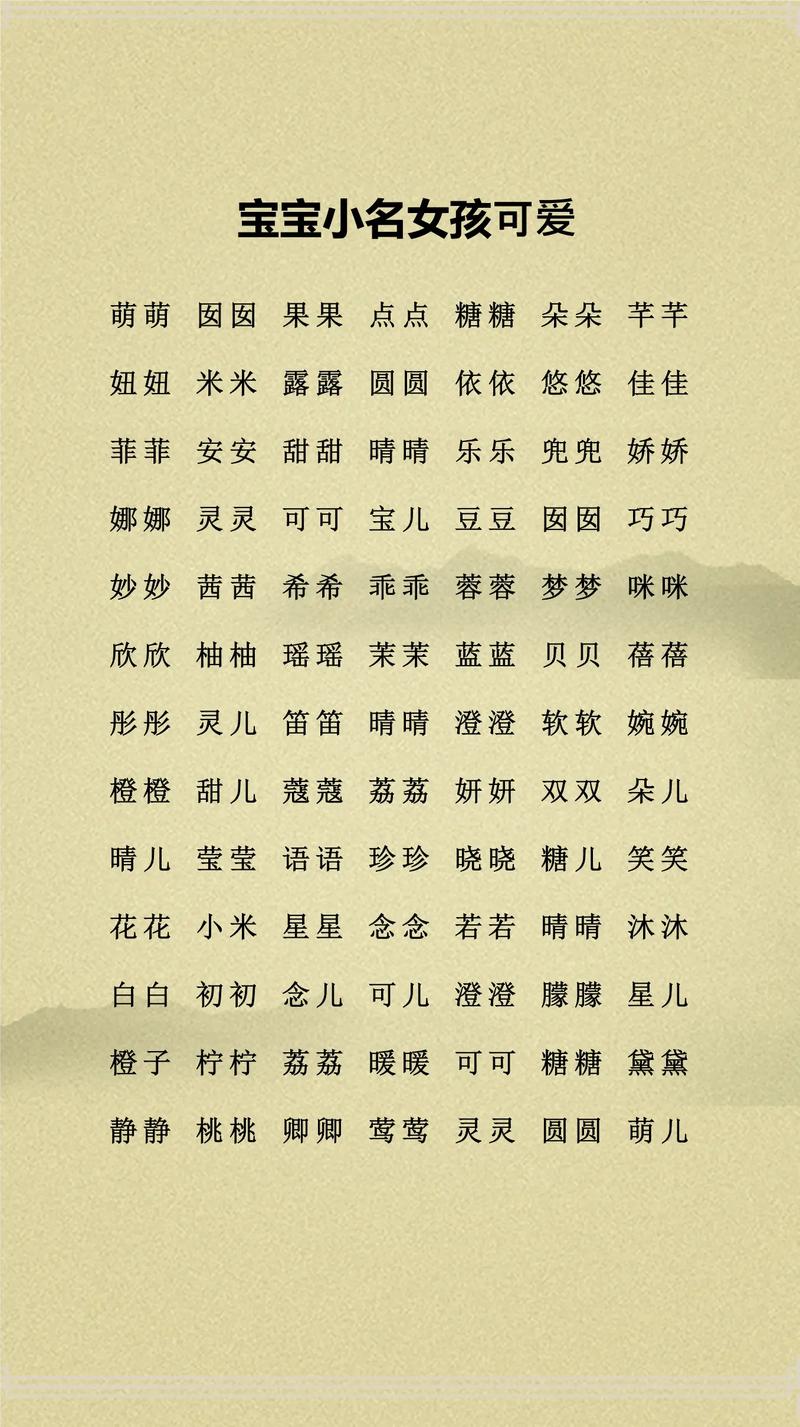 宝宝小名女孩可爱
萌萌 囡囡 果果 点点 糖糖 朵朵 芊芊
妞妞 米米 露露 圆圆 依依 悠悠 佳佳
菲菲 安安 甜甜 晴晴 乐乐 兜兜 娇娇
娜娜 灵灵 可可 宝儿 豆豆 囡囡 巧巧
妙妙 茜茜 希希 乖乖 蓉蓉 梦梦 咪咪
欣欣 柚柚 瑶瑶 茉茉 蓝蓝 贝贝 蓓蓓
彤彤 灵儿 笛笛 晴晴 澄澄 软软 婉婉
橙橙 甜儿 蔻蔻 荔荔 妍妍 双双 朵儿
晴儿 莹莹 语语 珍珍 晓晓 糖儿 笑笑
花花 小米 星星 念念 若若 晴晴 沐沐
白白 初初 念儿 可儿 澄澄 朦朦 星儿
橙子 柠柠 荔荔 暖暖 可可 糖糖 黛黛
静静 桃桃 卿卿 莺莺 灵灵 圆圆 萌儿